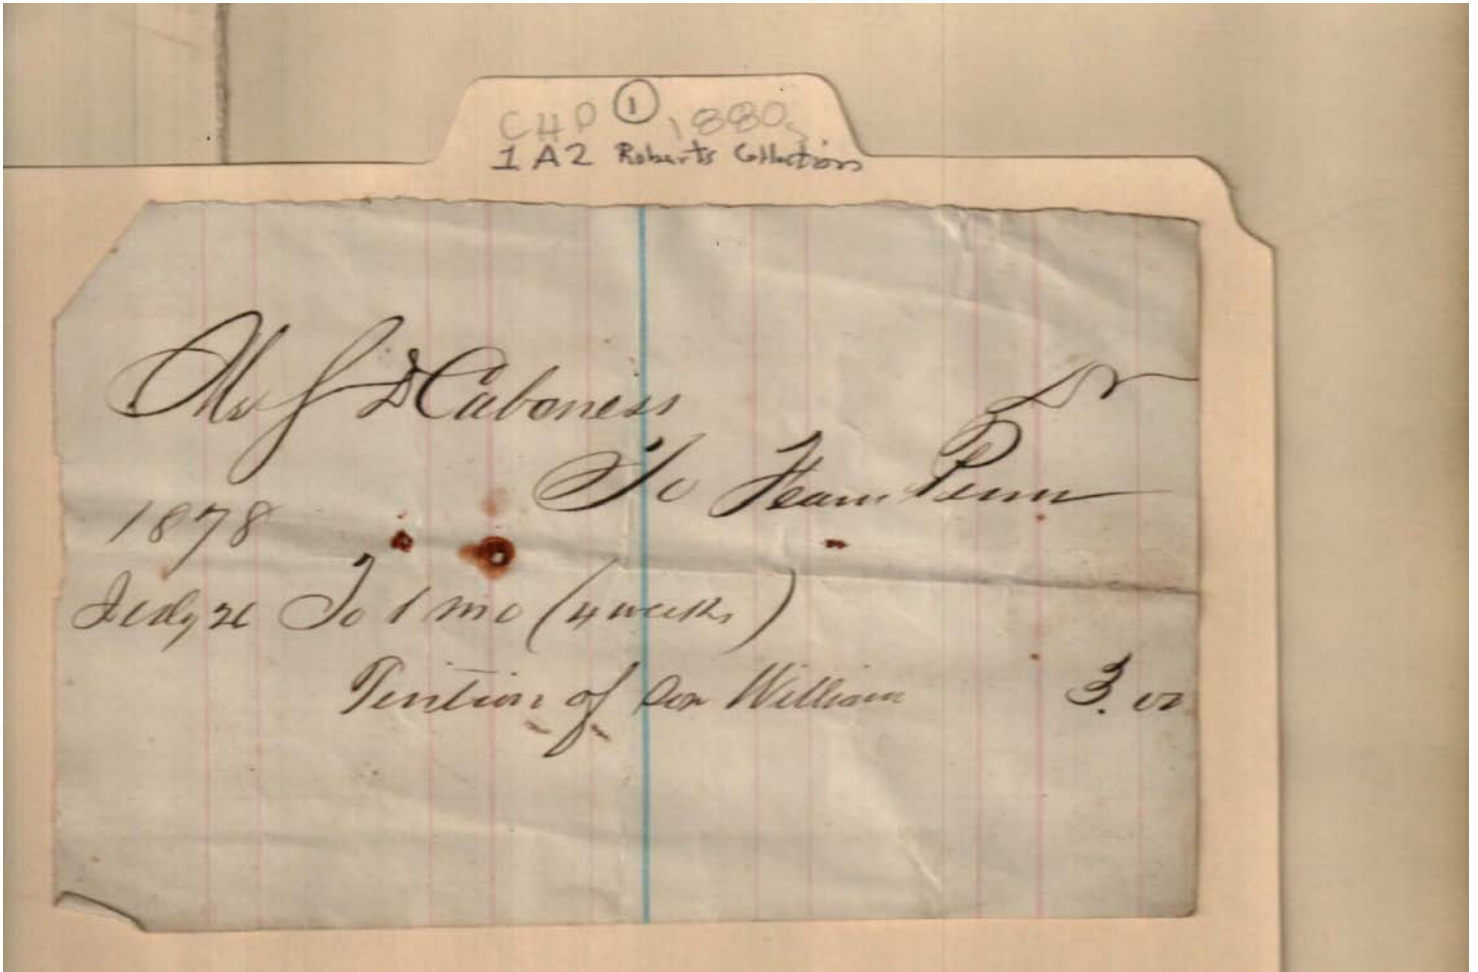 CHP ① 1880s
1A2 Roberts Collection
Mr J D Caboness Dr
To Penn
1878
July 26 To 1 mo (4 weeks)
Tuition of Son William 3.00